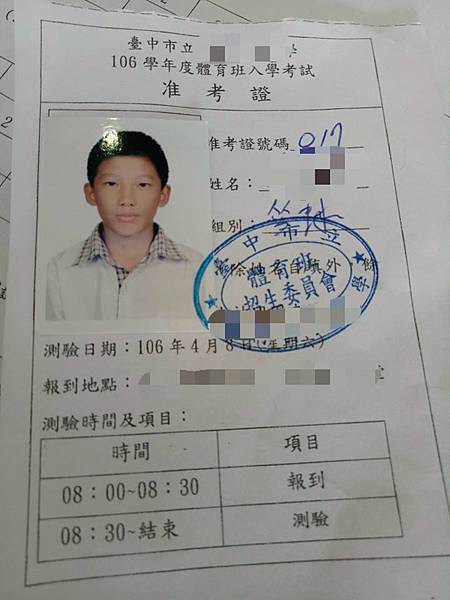 臺中市立 學
106 學年度體育班入學考試
准考證
准考證號碼 017
姓名：
組別：
除 自填外 餘
中 立 學
體育班
招生委員會
測驗日期：106 年 4 月 8 日(星期六)
報到地點：
測驗時間及項目：
時間 項目
08：00~08：30 報到
08：30~結束 測驗